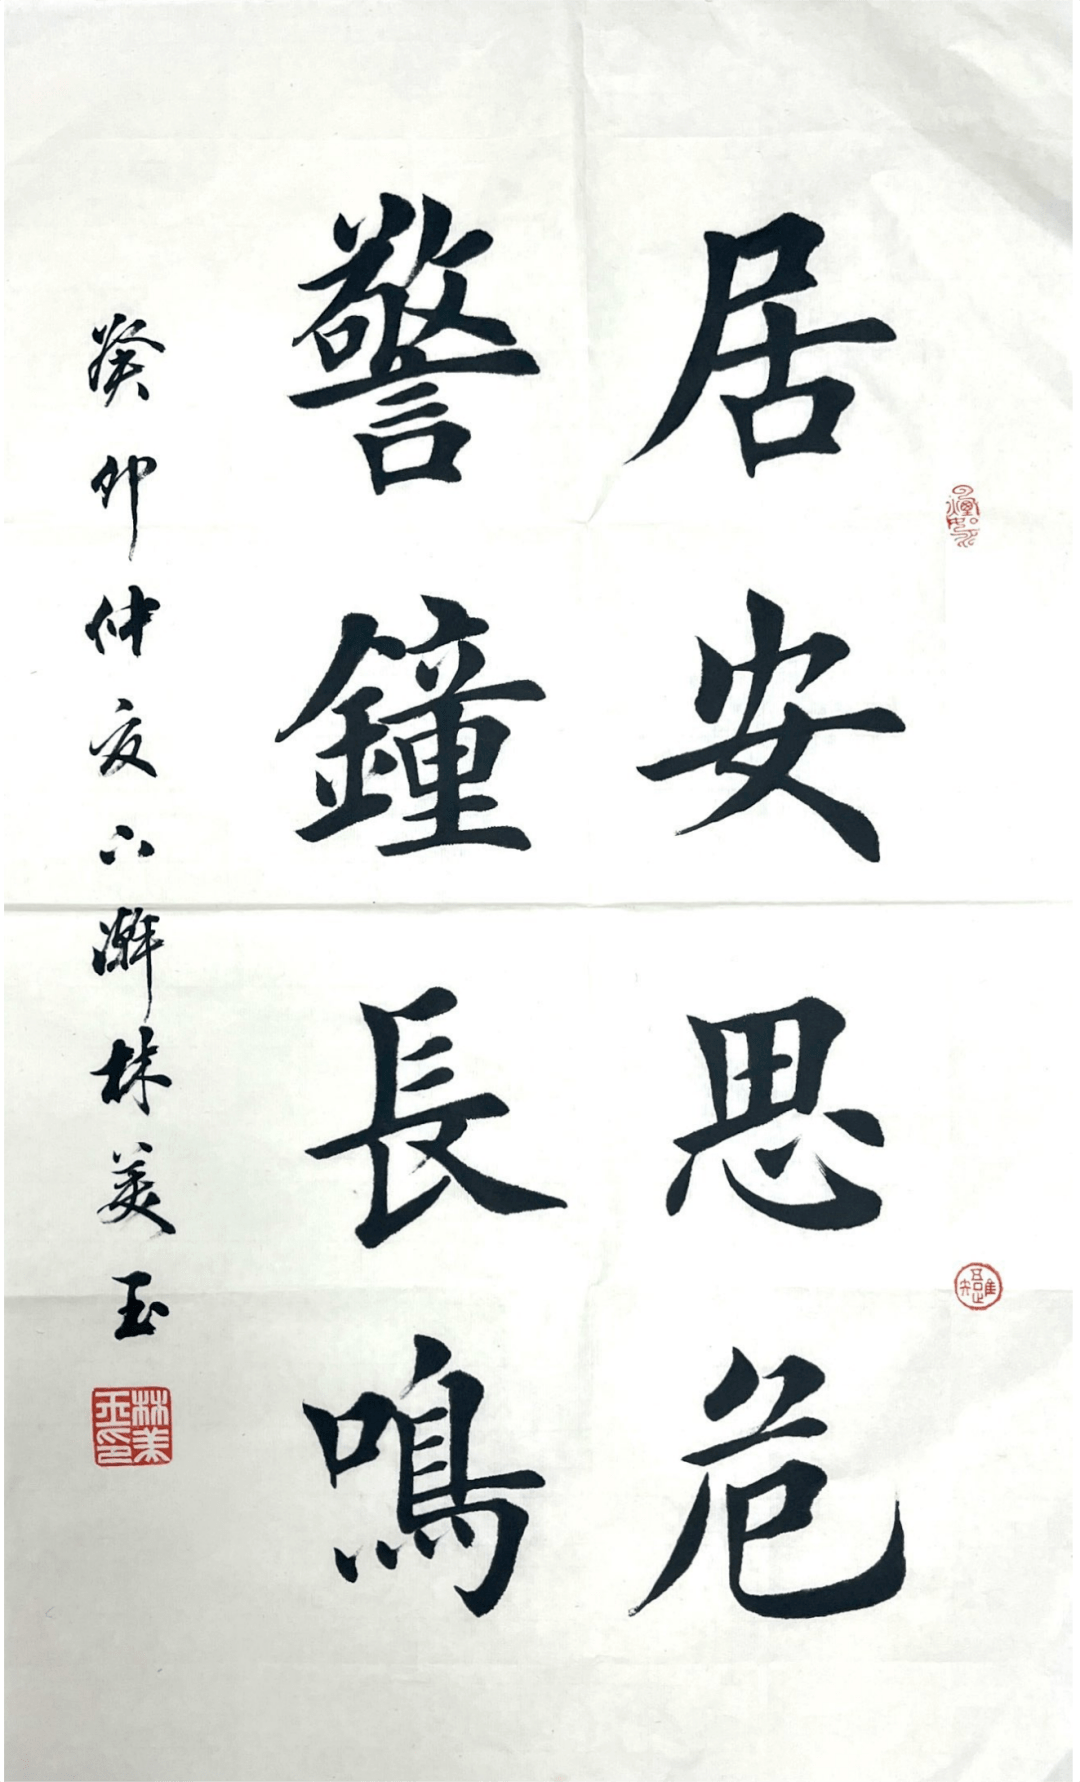 居安思危
警鐘長鳴
癸卯仲夏下澣林美玉
林美玉印